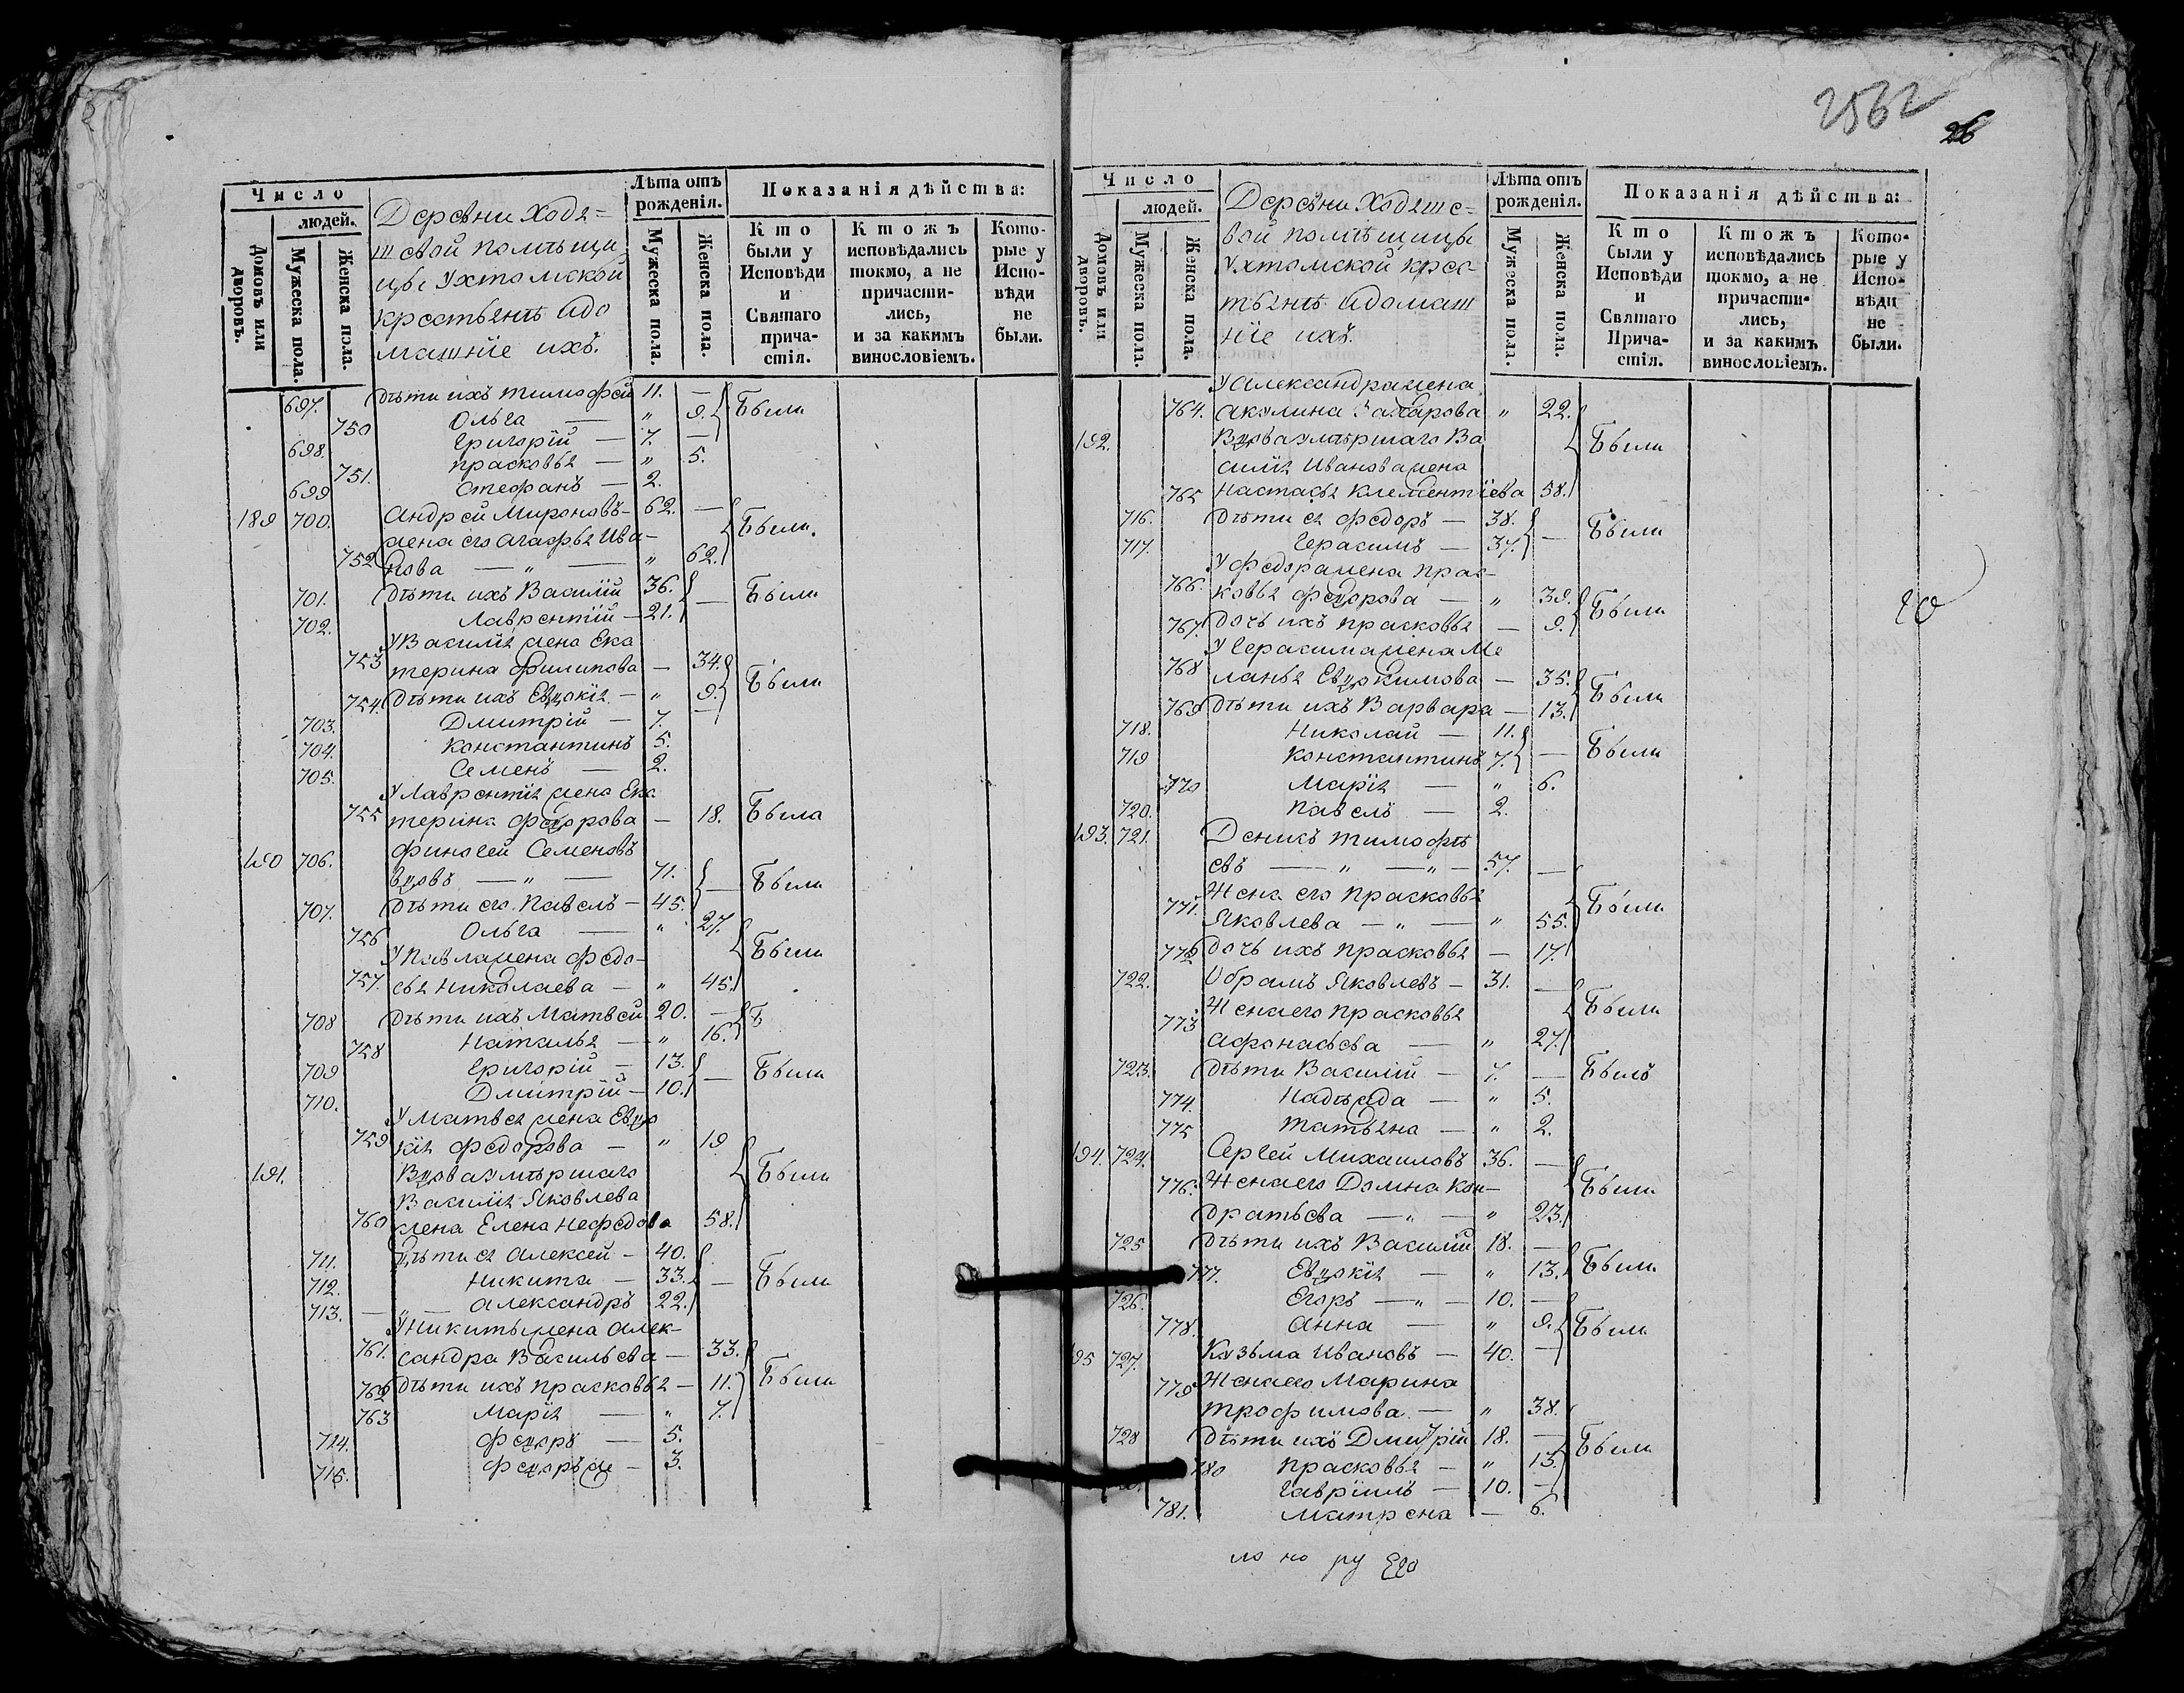 2562
26
Число
людей.
Домовъ или дворовъ.
Мужеска пола.
Женска пола.
Деревни Ходя=
шевой помѣщи
цы Ухтомской
крестьянѣ идо
машнїе ихъ.
Лѣта отъ рожденія.
Мужеска пола.
Женска пола.
Показанія дѣйства:
Кто были у Исповѣди и Святаго причастія.
Ктожъ исповѣдались токмо, а не причастились, и за какимъ винословіемъ.
Которые у Исповѣди не были.
697. дѣти ихъ тимофей 11. — Были
750 Ольга — " 9.
698. Григорїй — 7. —
751. прасковья — " 5.
699 Стефанъ — 2.
189 700. Андрей Мироновъ — 62. — Были.
жена его агафья Ива-
752 нова — " — " 62.
701. дѣти ихъ Василїй 36. — Были
702. Лаврентїй — 21.
У Василїя жена Ека
753 терина филипова — 34. Были
754. дѣти ихъ Евдокїя — " 9.
703. Дмитрїй — 7. —
704. Константинъ 5.
705. Семенъ — 2.
У Лаврентїя жена Ека
755 терина федорова — 18. Была
190 706. финогей Семеновъ
вдовъ — " — 71. — Были
707. дѣти его Павелъ — 45.
756 Ольга — " 27. Были
У Павла жена федо-
757. сья Николаева — " 45.
708 дѣти ихъ Матвей 20. — Б
758 Наталья — " 16.
709 Григорїй — 13. — Были
710. Дмитрїй — 10.
У Матвея жена Евдо
759 кїя федорова — " 19 Были
191. Вдова умѣршаго
Василїя Яковлева
760 жена Елена Нефедова 58.
711. дѣти ея Алексей — 40. — Были
712. Никита — 33.
713. — " — Александръ 22.
У Никиты жена Алек-
761. сандра Васильева — 33. Были
762 дѣти ихъ прасковья — 11.
763 Марїя — " 7.
714. федоръ — 5.
715. федоръ же — 3.
Число
людей.
Домовъ или дворовъ.
Мужеска пола.
Женска пола.
Деревни Ходяше-
вой помѣщицы
Ухтомской крес-
тьянѣ идомаш
нїе ихъ.
Лѣта отъ рожденія.
Мужеска пола.
Женска пола.
Показанія дѣйства:
Кто были у Исповѣди и Святаго Причастія.
Ктожъ исповѣдались токмо, а не причастились, и за какимъ винословіемъ.
Которые у Исповѣди не были.
У Александра жена
764. акулина Захарова " 22. Были
192. Вдова умѣршаго Ва
силїя Иванова жена
765 Настасья Клементїева 58.
716. дѣти ея федоръ — 38. — Были
717. Герасимъ — 37.
У федора жена прас-
766. ковья федорова — " 39. Были
767. дочь ихъ прасковья — 9.
У Герасима жена Ме
768 ланья Евдокимова — 35. Были
769 дѣти ихъ Варвара — 13.
718. Николай — 11. — Были
719 Константинъ 7.
770 Марїя — " 6.
720. павелъ — 2.
193. 721. Деникъ тимофѣ
евъ — " — " — 57. — Были
771. Жена его прасковья
Яковлева — " — " 55.
772 дочь ихъ прасковья — 17.
722. Обрамъ Яковлевъ — 31. — Были
773 Жена его прасковья
афонасьева — " 27.
723. дѣти Василїй — 7. — Былъ
774. Надѣжда — " 5.
775 татьяна — " 2.
194. 724. Сергей Михаиловъ 36. — Были
776. Жена его Домна Кон-
дратьева — " — " 23.
725 дѣти ихъ Василїй 18. — Были
777. Евдокїя — " 13.
726. Егоръ — " — 10. — Были
778. анна — " 9.
195 727. Кузьма Ивановъ — 40. —
779 Жена его Марина
трофимова — " 38. Были
728 дѣти ихъ Дмитрїй 18. —
780 прасковья — " 13.
Гаврїилъ — 10. —
781. матрена — 6.
ло но ру